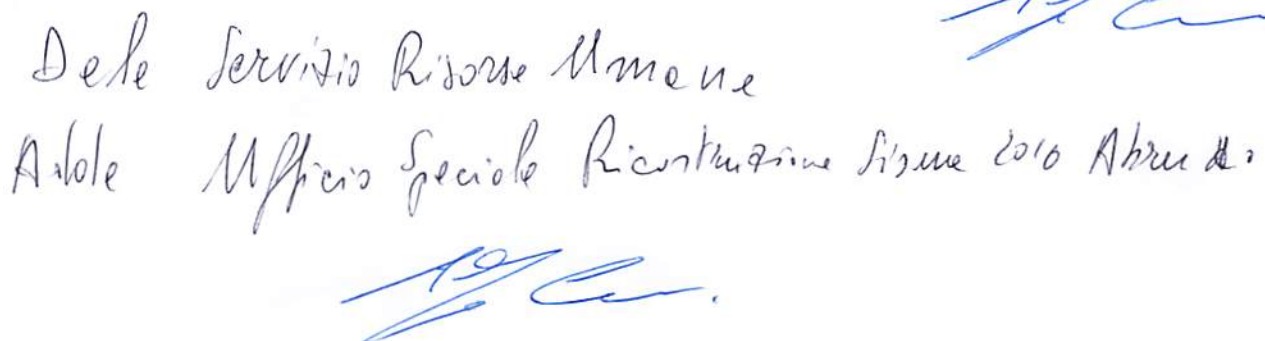 Dele Servizio Risorse Umane
Ufficio Speciale Ricostruzione Sisma 2016 Abruzzo